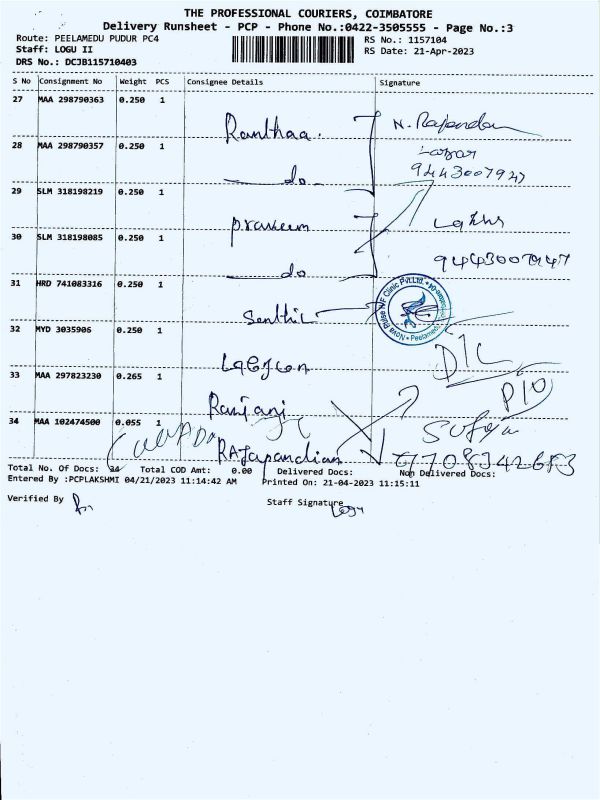 THE PROFESSIONAL COURIERS, COIMBATORE
Delivery Runsheet - PCP - Phone No.:0422-3505555 - Page No.:3
Route: PEELAMEDU PUDUR PC4
RS No.: 1157104
Staff: LOGU II
RS Date: 21-Apr-2023
DRS No.: DCJB115710403
S No Consignment No Weight PCS Consignee Details Signature
27 MAA 298790363 0.250 1
N. Rajendan
28 MAA 298790357 0.250 1
do
9443007947
29 SLM 318198219 0.250 1
praveen
30 SLM 318198085 0.250 1
do
9443007947
31 HRD 741083316 0.250 1
Senthil
Nova Pulse IVF Clinic Pvt.Ltd.
32 MYD 3035906 0.250 1
D/C
33 MAA 297823230 0.265 1
Ranjani
P/O
34 MAA 102474500 0.055 1
RAJapandian
Total No. Of Docs: 34 Total COD Amt: 0.00 Delivered Docs: Non Delivered Docs:
Entered By :PCPLAKSHMI 04/21/2023 11:14:42 AM Printed On: 21-04-2023 11:15:11
Verified By
Staff Signature Logu